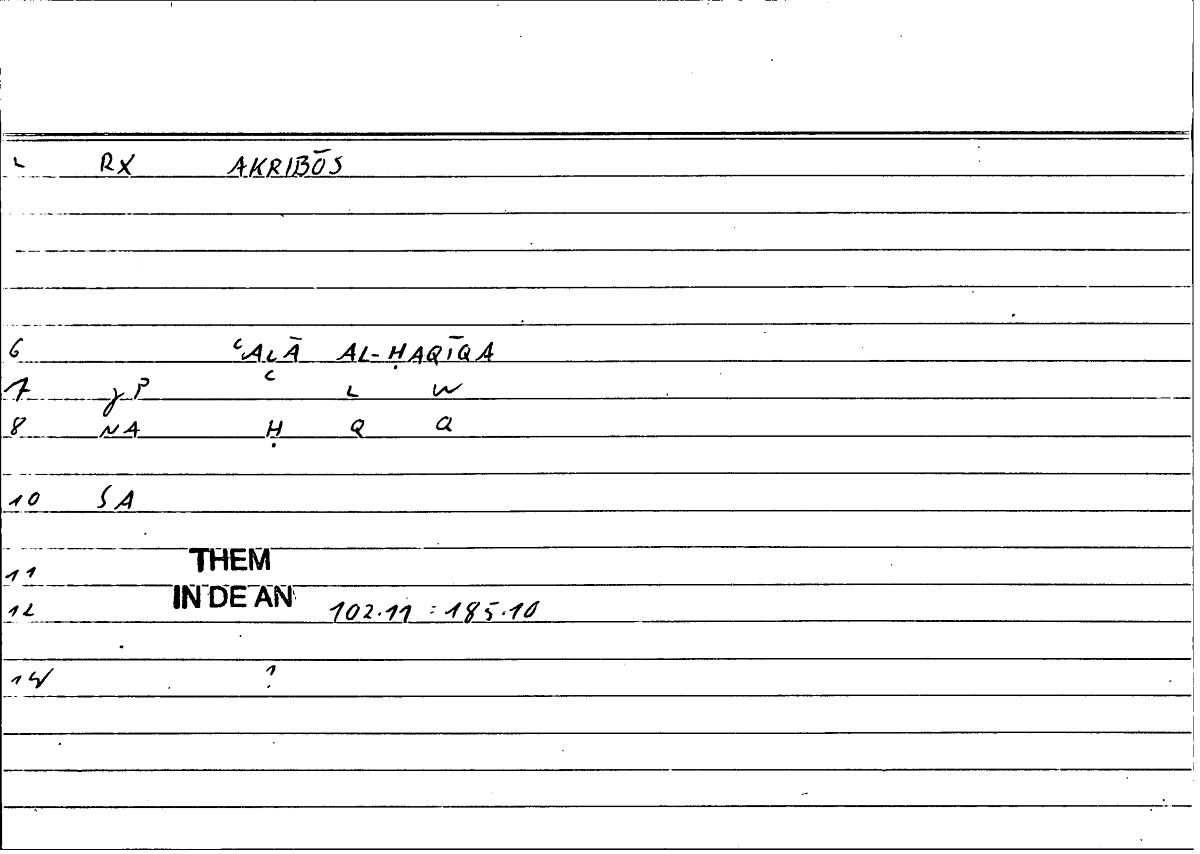 RX AKRIBŌS
6 ʿALĀ AL-ḤAQĪQA
7 γP ʿ L W
8 NA Ḥ Q Q
10 SA
11 THEM
12 IN DE AN 102.11 : 185.10
14 ?